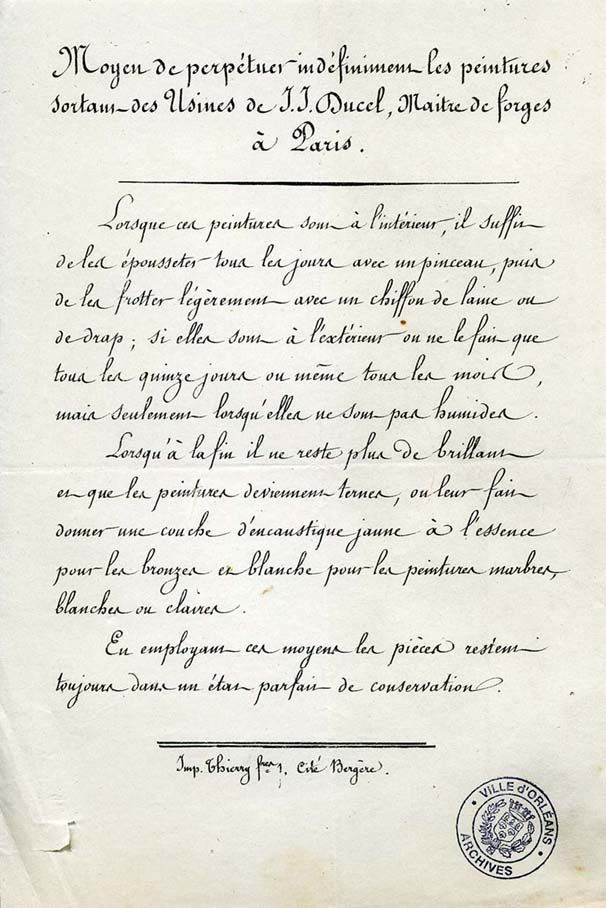 Moyen de perpétuer indéfiniment les peintures
sortant des Usines de J.J. Ducel, Maitre de forges
à Paris.
Lorsque ces peintures sont à l'intérieur, il suffit
de les épousseter tous les jours avec un pinceau, puis
de les frotter légèrement avec un chiffon de laine ou
de drap ; si elles sont à l'extérieur on ne le fait que
tous les quinze jours ou même tous les mois,
mais seulement lorsqu'elles ne sont pas humides.
Lorsqu'à la fin il ne reste plus de brillant
et que les peintures deviennent ternes, on leur fait
donner une couche d'encaustique jaune à l'essence
pour les bronzes et blanche pour les peintures marbres,
blanches ou claires.
En employant ces moyens les pièces restent
toujours dans un état parfait de conservation.
Imp. Thierry fres 1, Cité Bergère.
VILLE d'ORLÉANS
ARCHIVES